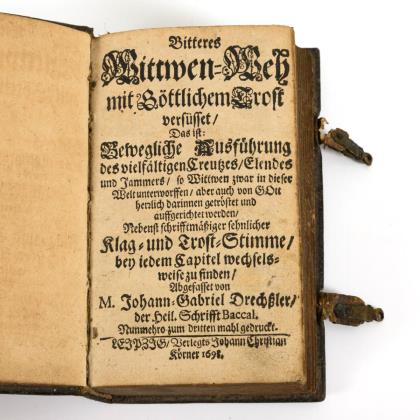 Bitteres
Wittwen-Weh
mit Göttlichem Trost
versüsset/
Das ist:
Bewegliche Ausführung
des vielfältigen Creutzes/Elendes
und Jammers/ so Wittwen zwar in dieser
Welt unterworffen/ aber auch von GOtt
hertzlich darinnen getröstet und
auffgerichtet werden/
Nebenst schrifftmäßiger sehnlicher
Klag- und Trost-Stimme/
bey iedem Capitel wechsels-
weise zu finden/
Abgefasset von
M. Johann-Gabriel Drechßler/
der Heil. Schrifft Baccal.
Nunmehro zum dritten mahl gedruckt.
LEIPZIG/ Verlegts Johann Christian
Körner 1698.